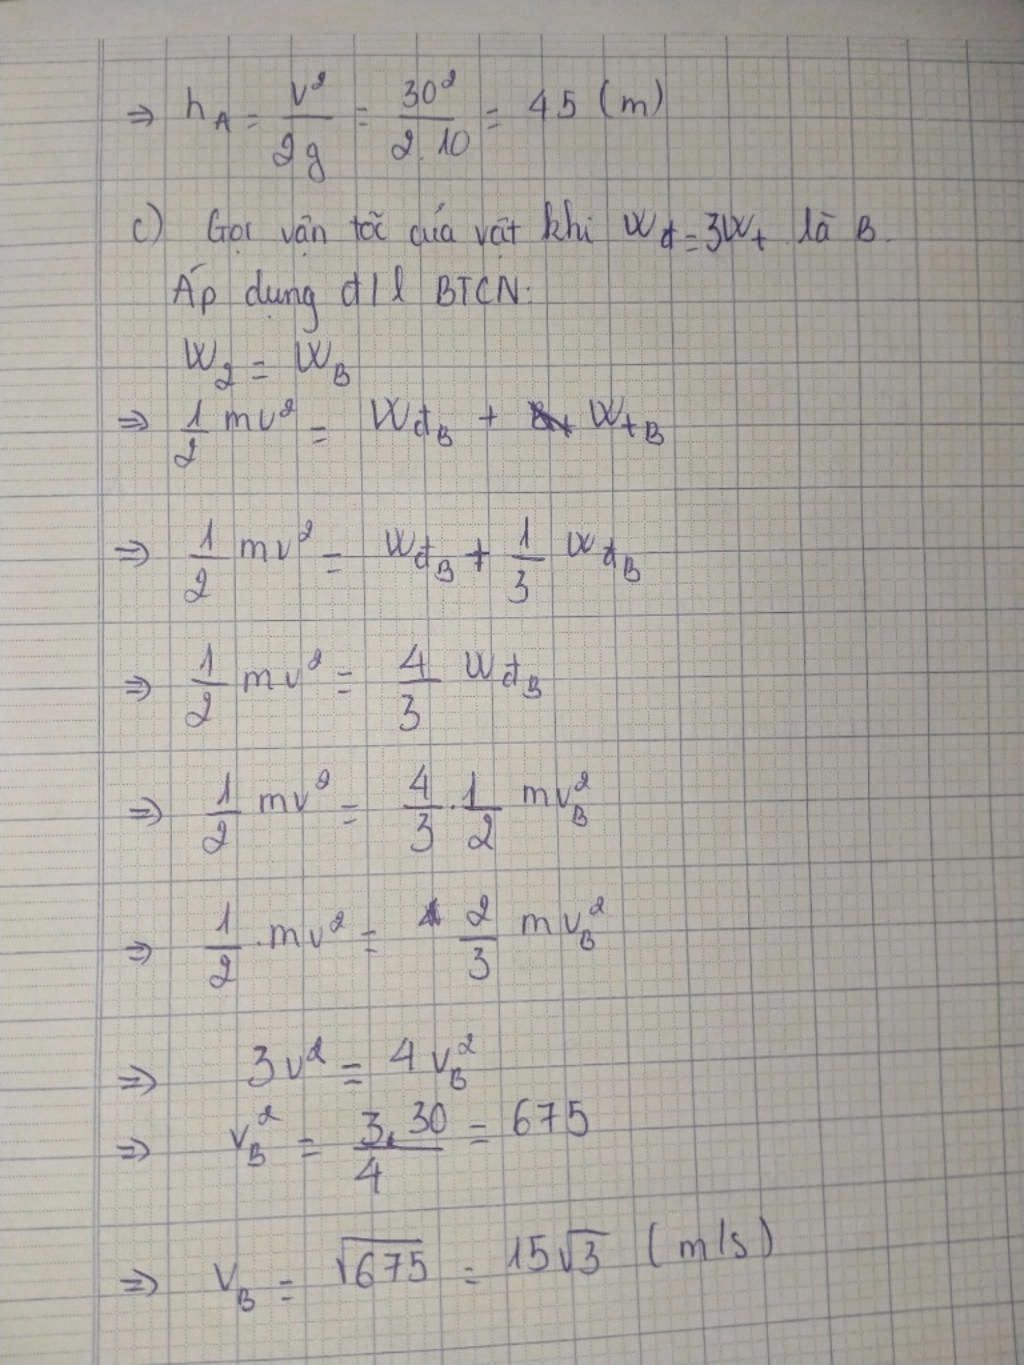 ⇒ h_A = v²/2g = 30²/2.10 = 45 (m)
c) Gọi vận tốc của vật khi Wđ = 3Wt là B.
Áp dụng đ/l BTCN:
W₂ = W_B
⇒ 1/2 mv² = Wđ_B + Wt_B
⇒ 1/2 mv² = Wđ_B + 1/3 Wđ_B
⇒ 1/2 mv² = 4/3 Wđ_B
⇒ 1/2 mv² = 4/3 . 1/2 mv_B²
⇒ 1/2 . mv² = 2/3 mv_B²
⇒ 3v² = 4v_B²
⇒ v_B² = 3.30/4 = 675
⇒ v_B = √675 = 15√3 (m/s)